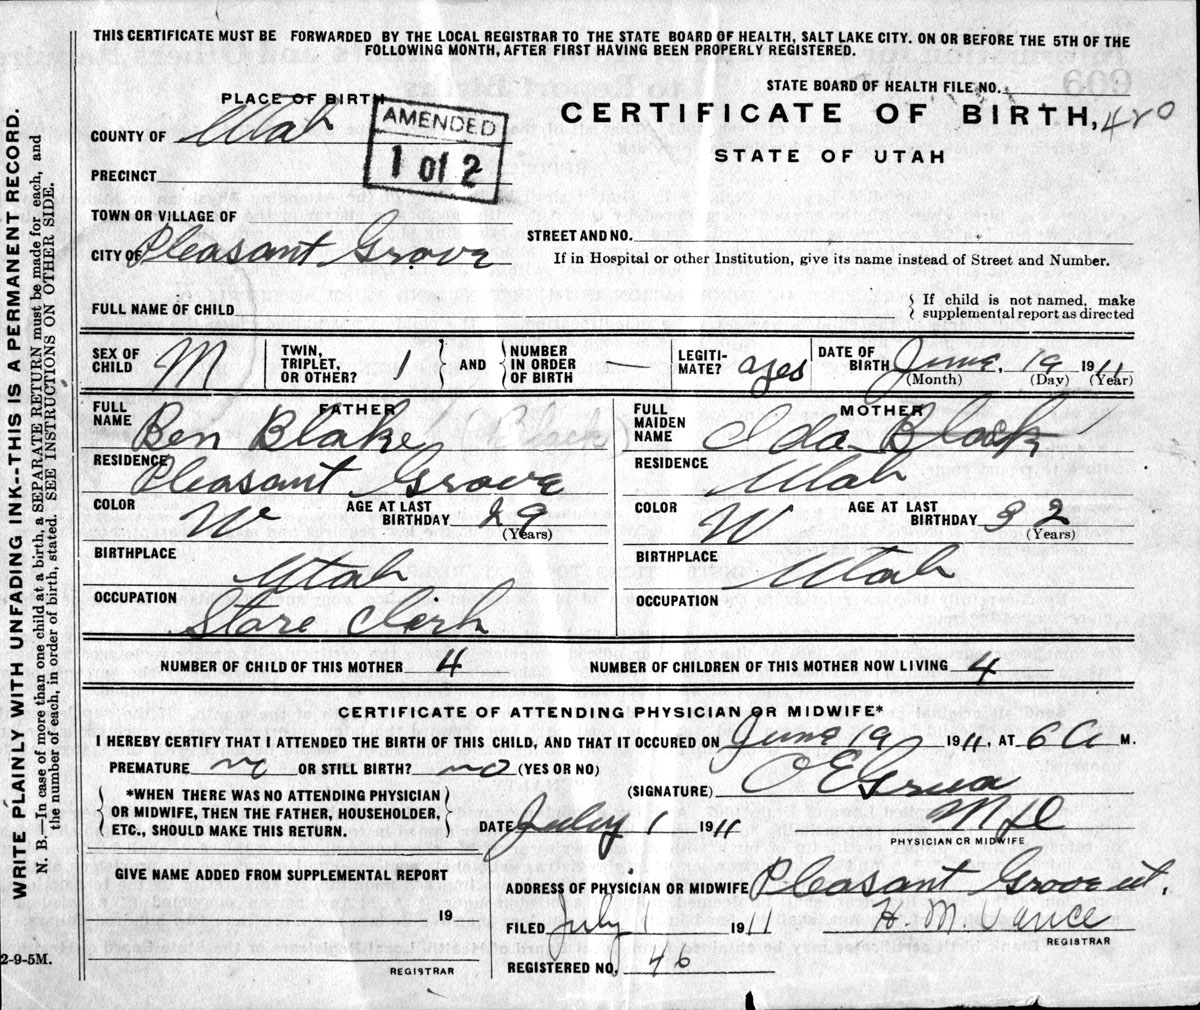 THIS CERTIFICATE MUST BE FORWARDED BY THE LOCAL REGISTRAR TO THE STATE BOARD OF HEALTH, SALT LAKE CITY. ON OR BEFORE THE 5TH OF THE
FOLLOWING MONTH, AFTER FIRST HAVING BEEN PROPERLY REGISTERED.
WRITE PLAINLY WITH UNFADING INK--THIS IS A PERMANENT RECORD.
N. B.—In case of more than one child at a birth, a SEPARATE RETURN must be made for each, and
the number of each, in order of birth, stated. SEE INSTRUCTIONS ON OTHER SIDE.
STATE BOARD OF HEALTH FILE NO.
PLACE OF BIRTH
CERTIFICATE OF BIRTH, 420
COUNTY OF Utah
AMENDED
1 of 2
STATE OF UTAH
PRECINCT
TOWN OR VILLAGE OF
STREET AND NO.
CITY OF Pleasant Grove
If in Hospital or other Institution, give its name instead of Street and Number.
FULL NAME OF CHILD
If child is not named, make
supplemental report as directed
SEX OF CHILD M TWIN, TRIPLET, OR OTHER? 1 AND NUMBER IN ORDER OF BIRTH — LEGITI-MATE? yes DATE OF BIRTH June 19 1911
(Month) (Day) (Year)
FATHER MOTHER
FULL NAME Ben Blake (Black) FULL MAIDEN NAME Ida Black
RESIDENCE Pleasant Grove RESIDENCE Utah
COLOR W AGE AT LAST BIRTHDAY 29 (Years) COLOR W AGE AT LAST BIRTHDAY 32 (Years)
BIRTHPLACE Utah BIRTHPLACE Utah
OCCUPATION Store Clerk OCCUPATION
NUMBER OF CHILD OF THIS MOTHER 4 NUMBER OF CHILDREN OF THIS MOTHER NOW LIVING 4
CERTIFICATE OF ATTENDING PHYSICIAN OR MIDWIFE*
I HEREBY CERTIFY THAT I ATTENDED THE BIRTH OF THIS CHILD, AND THAT IT OCCURED ON June 19 1911, AT 6 A M.
PREMATURE no OR STILL BIRTH? no (YES OR NO)
(SIGNATURE) O E Grua
*WHEN THERE WAS NO ATTENDING PHYSICIAN
OR MIDWIFE, THEN THE FATHER, HOUSEHOLDER,
ETC., SHOULD MAKE THIS RETURN.
DATE July 1 1911 M D
PHYSICIAN OR MIDWIFE
GIVE NAME ADDED FROM SUPPLEMENTAL REPORT
ADDRESS OF PHYSICIAN OR MIDWIFE Pleasant Grove ut.
19
FILED July 1 1911 H. M.
REGISTRAR
2-9-5M.
REGISTRAR
REGISTERED NO. 46